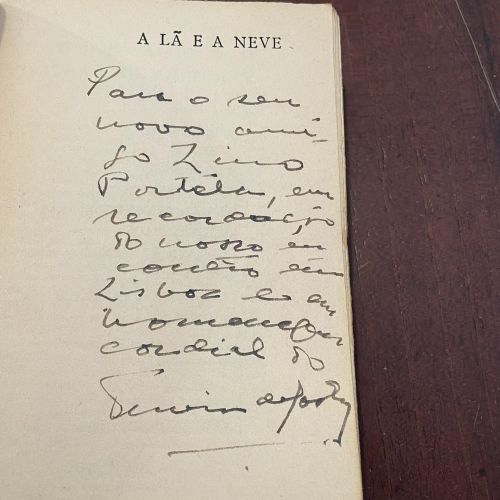 A LÃ E A NEVE
Para o seu
novo ami-
go Lino
Portela, em
recordação
do nosso en
contro em
Lisboa e em
homenagem
cordial do
Ferreira de Castro